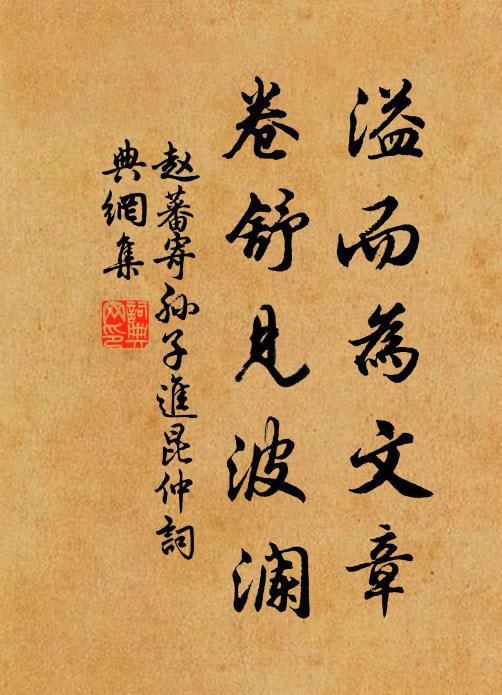 溢而為文章
卷舒見波澜
赵蕃寄孙子進昆仲詞
典網集
詞典
网印